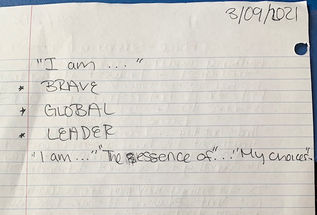 3/09/2021
"I am ... "
* BRAVE
* GLOBAL
* LEADER
"I am..." "The essence of" ... "My choices".